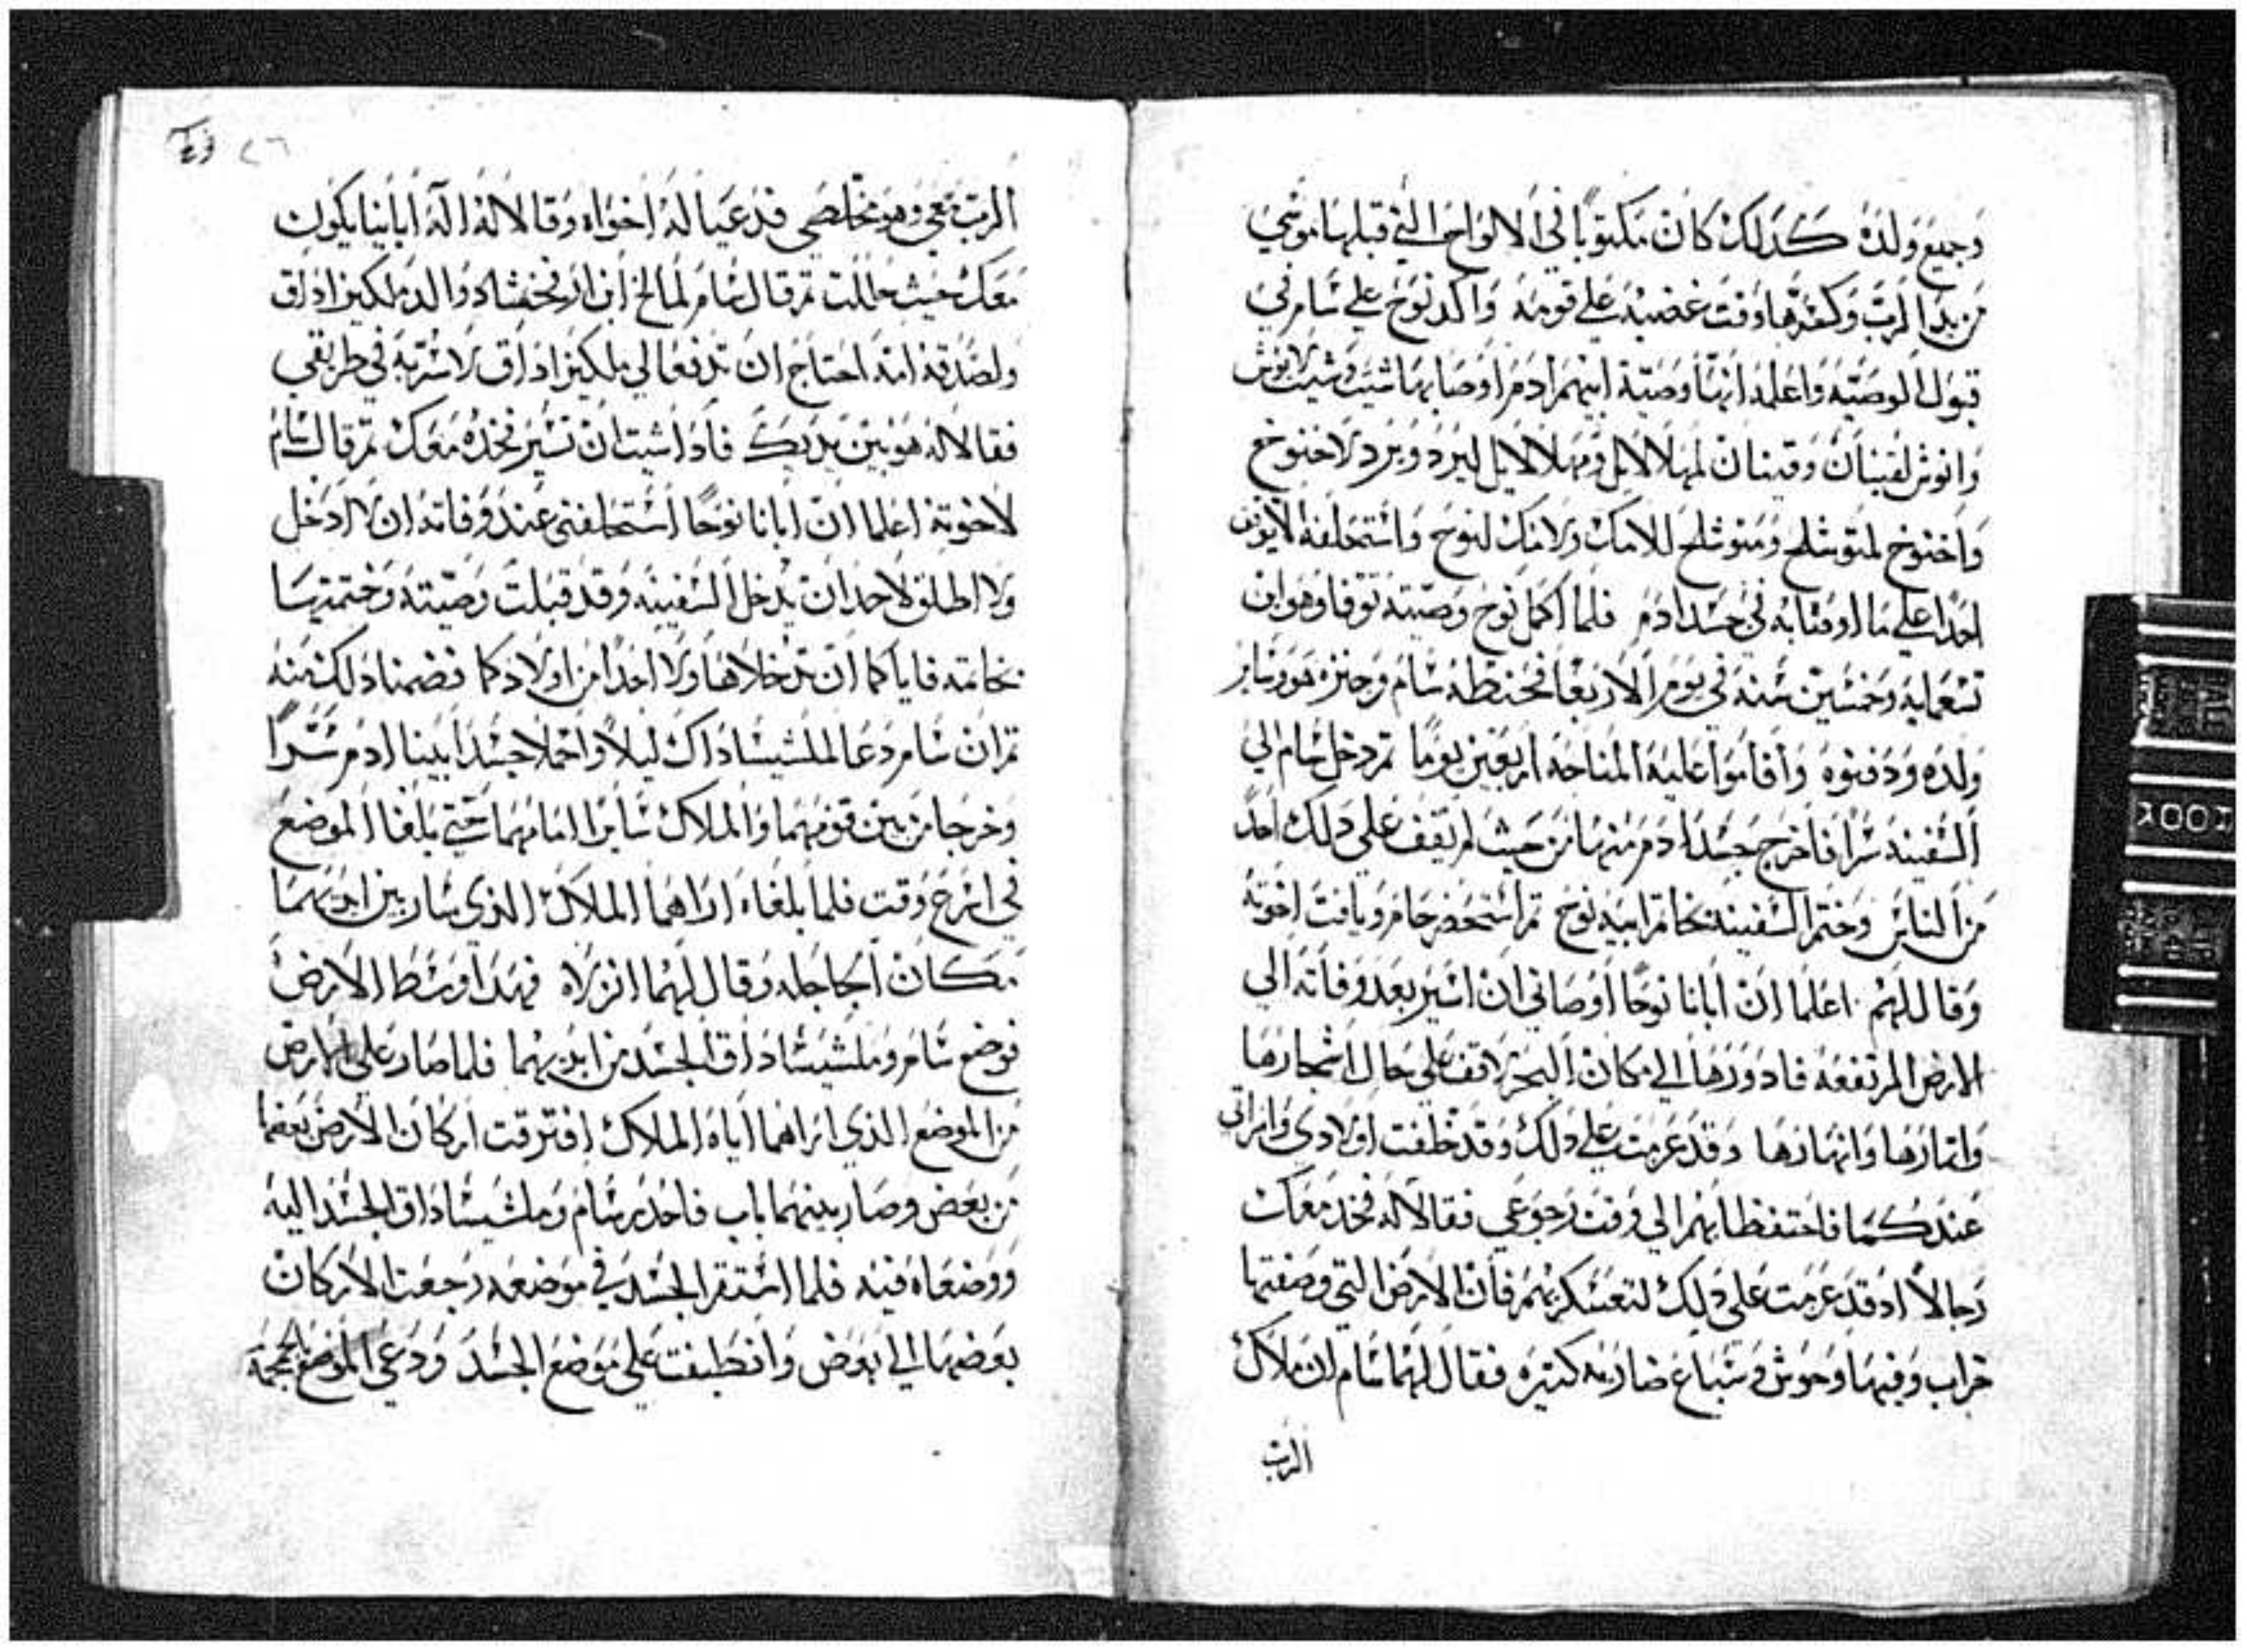 وجميع ولده كدلك كان مكتوبًا في الالواح التي قبلها موسي
من يد الرب وكسرها وقت غضبه علي قومه واكد نوح علي سام في
قبول الوصيه واعلمه انها وصية ابيهم ادم اوصا بها شيت وشيت لانوش
وانوش لقينان وقينان لمهلالايل ومهلالايل ليرد ويرد لاخنوخ
واخنوخ لمتوشلح ومتوشلح للامك ولامك لنوح واستحلفه لا
احدًا علي ما اوصا به في جسد ادم فلما اكمل نوح وصيته توفا وهو ابن
تسعمايه وخمسين سنه في يوم الاربعا فحنطه سام وجنزه هو وساير
ولده ودفنوه واقاموا عليه المناحه اربعين يومًا تم دخل سام الي
السفينه سرًا فاخرج جسد ادم منها من حيث لم يقف علي دلك احد
من الناس وختم السفينه بخاتم ابيه نوح تم استحضر حام ويافت اخوته
وقال لهم اعلما ان ابانا نوحًا اوصاني ان اسير بعد وفاته الي
الارض المرتفعه فادورها الي مكان البحر لاقف علي حال اشجارها
واتمارها وانهارها وقد عزمت علي دلك وقد خلفت اولادي وامراتي
عندكما فاحتفظا بهم الي وقت رجوعي فقالا له فخد معك
رجالاً اد قد عزمت علي دلك لتعسكر بهم فان الارض التي وصفتها
خراب وفيها وحوش وسباع ضاريه كتيره فقال لهما سام ان ملاك
الرب
الرب معي وهو مخلصي فدعيا له اخواه وقالا له اله ابانا يكون
معك حيث حللت تم قال سام لمالخ ابن ارفخشاد والد ملكيزاداق
ولصدقه انه احتاج ان تدفعا لي ملكيزاداق لاسر به في طريقي
فقالا له هو بين يديك فادا شيت ان تسير فخده معك تم قال سام
لاخوته اعلما ان ابانا نوحًا استحلفني عند وفاته ان لا ادخل
ولا اطلق لاحد ان يدخل السفينه وقد قبلت وصيته وختمتها
بخاتمه فاياكما ان تدخلاها ولا احدًا من اولادكما فضمنا دلك منه
تم ان سام دعا لملشيساداك ليلاً واحملا جسد ابينا ادم سرًا
وخرجا من بين قومهما والملاك سايرا امامهما حتي بلغا الموضع
في اسرع وقت فلما بلغاه اراهما الملاك الذي سار بين ايديهما
مكان الجاجله وقال لهما انزلاه فهدا وسط الارض
فوضع سام وملشيساداق الجسد من ايديهما فلما صار علي الارض
من الموضع الذي اراهما اياه الملاك افترقت اركان الارض بعضها
من بعض وصار بينهما باب فاحدر سام وملشيساداق الجسد اليه
ووضعاه فيه فلما استقر الجسد في موضعه رجعت الاركان
بعضها الي بعض وانطبقت علي موضع الجسد ودعي الموضع الجمجمة